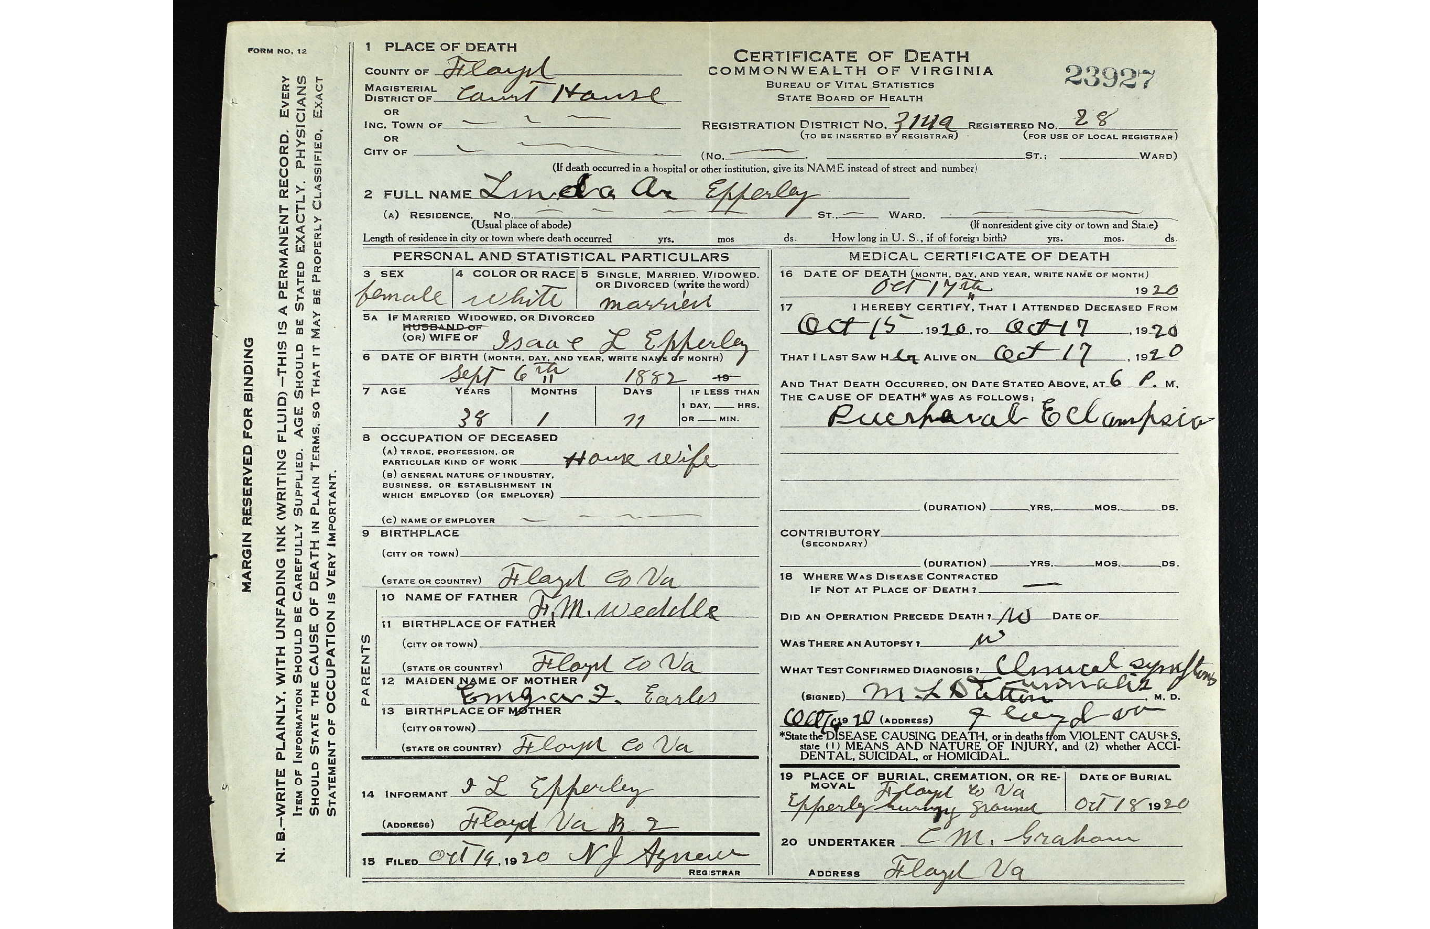 FORM NO. 12
MARGIN RESERVED FOR BINDING
N. B.—WRITE PLAINLY, WITH UNFADING INK (WRITING FLUID)—THIS IS A PERMANENT RECORD. EVERY
ITEM OF INFORMATION SHOULD BE CAREFULLY SUPPLIED. AGE SHOULD BE STATED EXACTLY. PHYSICIANS
SHOULD STATE THE CAUSE OF DEATH IN PLAIN TERMS, SO THAT IT MAY BE PROPERLY CLASSIFIED. EXACT
STATEMENT OF OCCUPATION IS VERY IMPORTANT.
1 PLACE OF DEATH
COUNTY OF Floyd
MAGISTERIAL DISTRICT OF Court House
OR
INC. TOWN OF
OR
CITY OF
CERTIFICATE OF DEATH
COMMONWEALTH OF VIRGINIA
BUREAU OF VITAL STATISTICS
STATE BOARD OF HEALTH
23927
REGISTRATION DISTRICT NO. 314a REGISTERED NO. 28
(TO BE INSERTED BY REGISTRAR) (FOR USE OF LOCAL REGISTRAR)
(NO. ST.; WARD)
(If death occurred in a hospital or other institution, give its NAME instead of street and number)
2 FULL NAME Linda Epperley
(A) RESIDENCE, NO. ST. WARD.
(Usual place of abode) (If nonresident give city or town and State)
Length of residence in city or town where death occurred yrs. mos ds. How long in U. S., if of foreign birth? yrs. mos. ds.
PERSONAL AND STATISTICAL PARTICULARS
3 SEX female
4 COLOR OR RACE white
5 SINGLE, MARRIED, WIDOWED, OR DIVORCED (write the word) married
5A IF MARRIED WIDOWED, OR DIVORCED
HUSBAND OF
(OR) WIFE OF Isaac L Epperley
6 DATE OF BIRTH (MONTH, DAY, AND YEAR, WRITE NAME OF MONTH)
Sept 6th 1882 19
7 AGE YEARS MONTHS DAYS IF LESS THAN
1 DAY, HRS.
OR MIN.
38 1 11
8 OCCUPATION OF DECEASED
(A) TRADE, PROFESSION, OR
PARTICULAR KIND OF WORK House wife
(B) GENERAL NATURE OF INDUSTRY,
BUSINESS, OR ESTABLISHMENT IN
WHICH EMPLOYED (OR EMPLOYER)
(C) NAME OF EMPLOYER
9 BIRTHPLACE
(CITY OR TOWN)
(STATE OR COUNTRY) Floyd Co Va
PARENTS
10 NAME OF FATHER F. M. Weddle
11 BIRTHPLACE OF FATHER
(CITY OR TOWN)
(STATE OR COUNTRY) Floyd Co Va
12 MAIDEN NAME OF MOTHER
F. Earles
13 BIRTHPLACE OF MOTHER
(CITY OR TOWN)
(STATE OR COUNTRY) Floyd Co Va
14 INFORMANT I L Epperley
(ADDRESS) Floyd Va R 2
15 FILED Oct 19, 1920 N J Agnew
REGISTRAR
MEDICAL CERTIFICATE OF DEATH
16 DATE OF DEATH (MONTH, DAY, AND YEAR, WRITE NAME OF MONTH)
Oct 17th 1920
17 I HEREBY CERTIFY, THAT I ATTENDED DECEASED FROM
Oct 15, 1920, TO Oct 17, 1920
THAT I LAST SAW HER ALIVE ON Oct 17, 1920
AND THAT DEATH OCCURRED, ON DATE STATED ABOVE, AT 6 P. M.
THE CAUSE OF DEATH* WAS AS FOLLOWS:
Puerperal Eclampsia
(DURATION) YRS. MOS. DS.
CONTRIBUTORY
(SECONDARY)
(DURATION) YRS. MOS. DS.
18 WHERE WAS DISEASE CONTRACTED
IF NOT AT PLACE OF DEATH?
DID AN OPERATION PRECEDE DEATH? No DATE OF
WAS THERE AN AUTOPSY? no
WHAT TEST CONFIRMED DIAGNOSIS? Clinical symptoms
(SIGNED) M L M. D.
Oct 19 20 (ADDRESS) Floyd Va
*State the DISEASE CAUSING DEATH, or in deaths from VIOLENT CAUSES,
state (1) MEANS AND NATURE OF INJURY, and (2) whether ACCI-
DENTAL, SUICIDAL, or HOMICIDAL.
19 PLACE OF BURIAL, CREMATION, OR RE-
MOVAL Floyd Co Va
Epperley burying ground
DATE OF BURIAL
Oct 18 1920
20 UNDERTAKER C M. Graham
ADDRESS Floyd Va